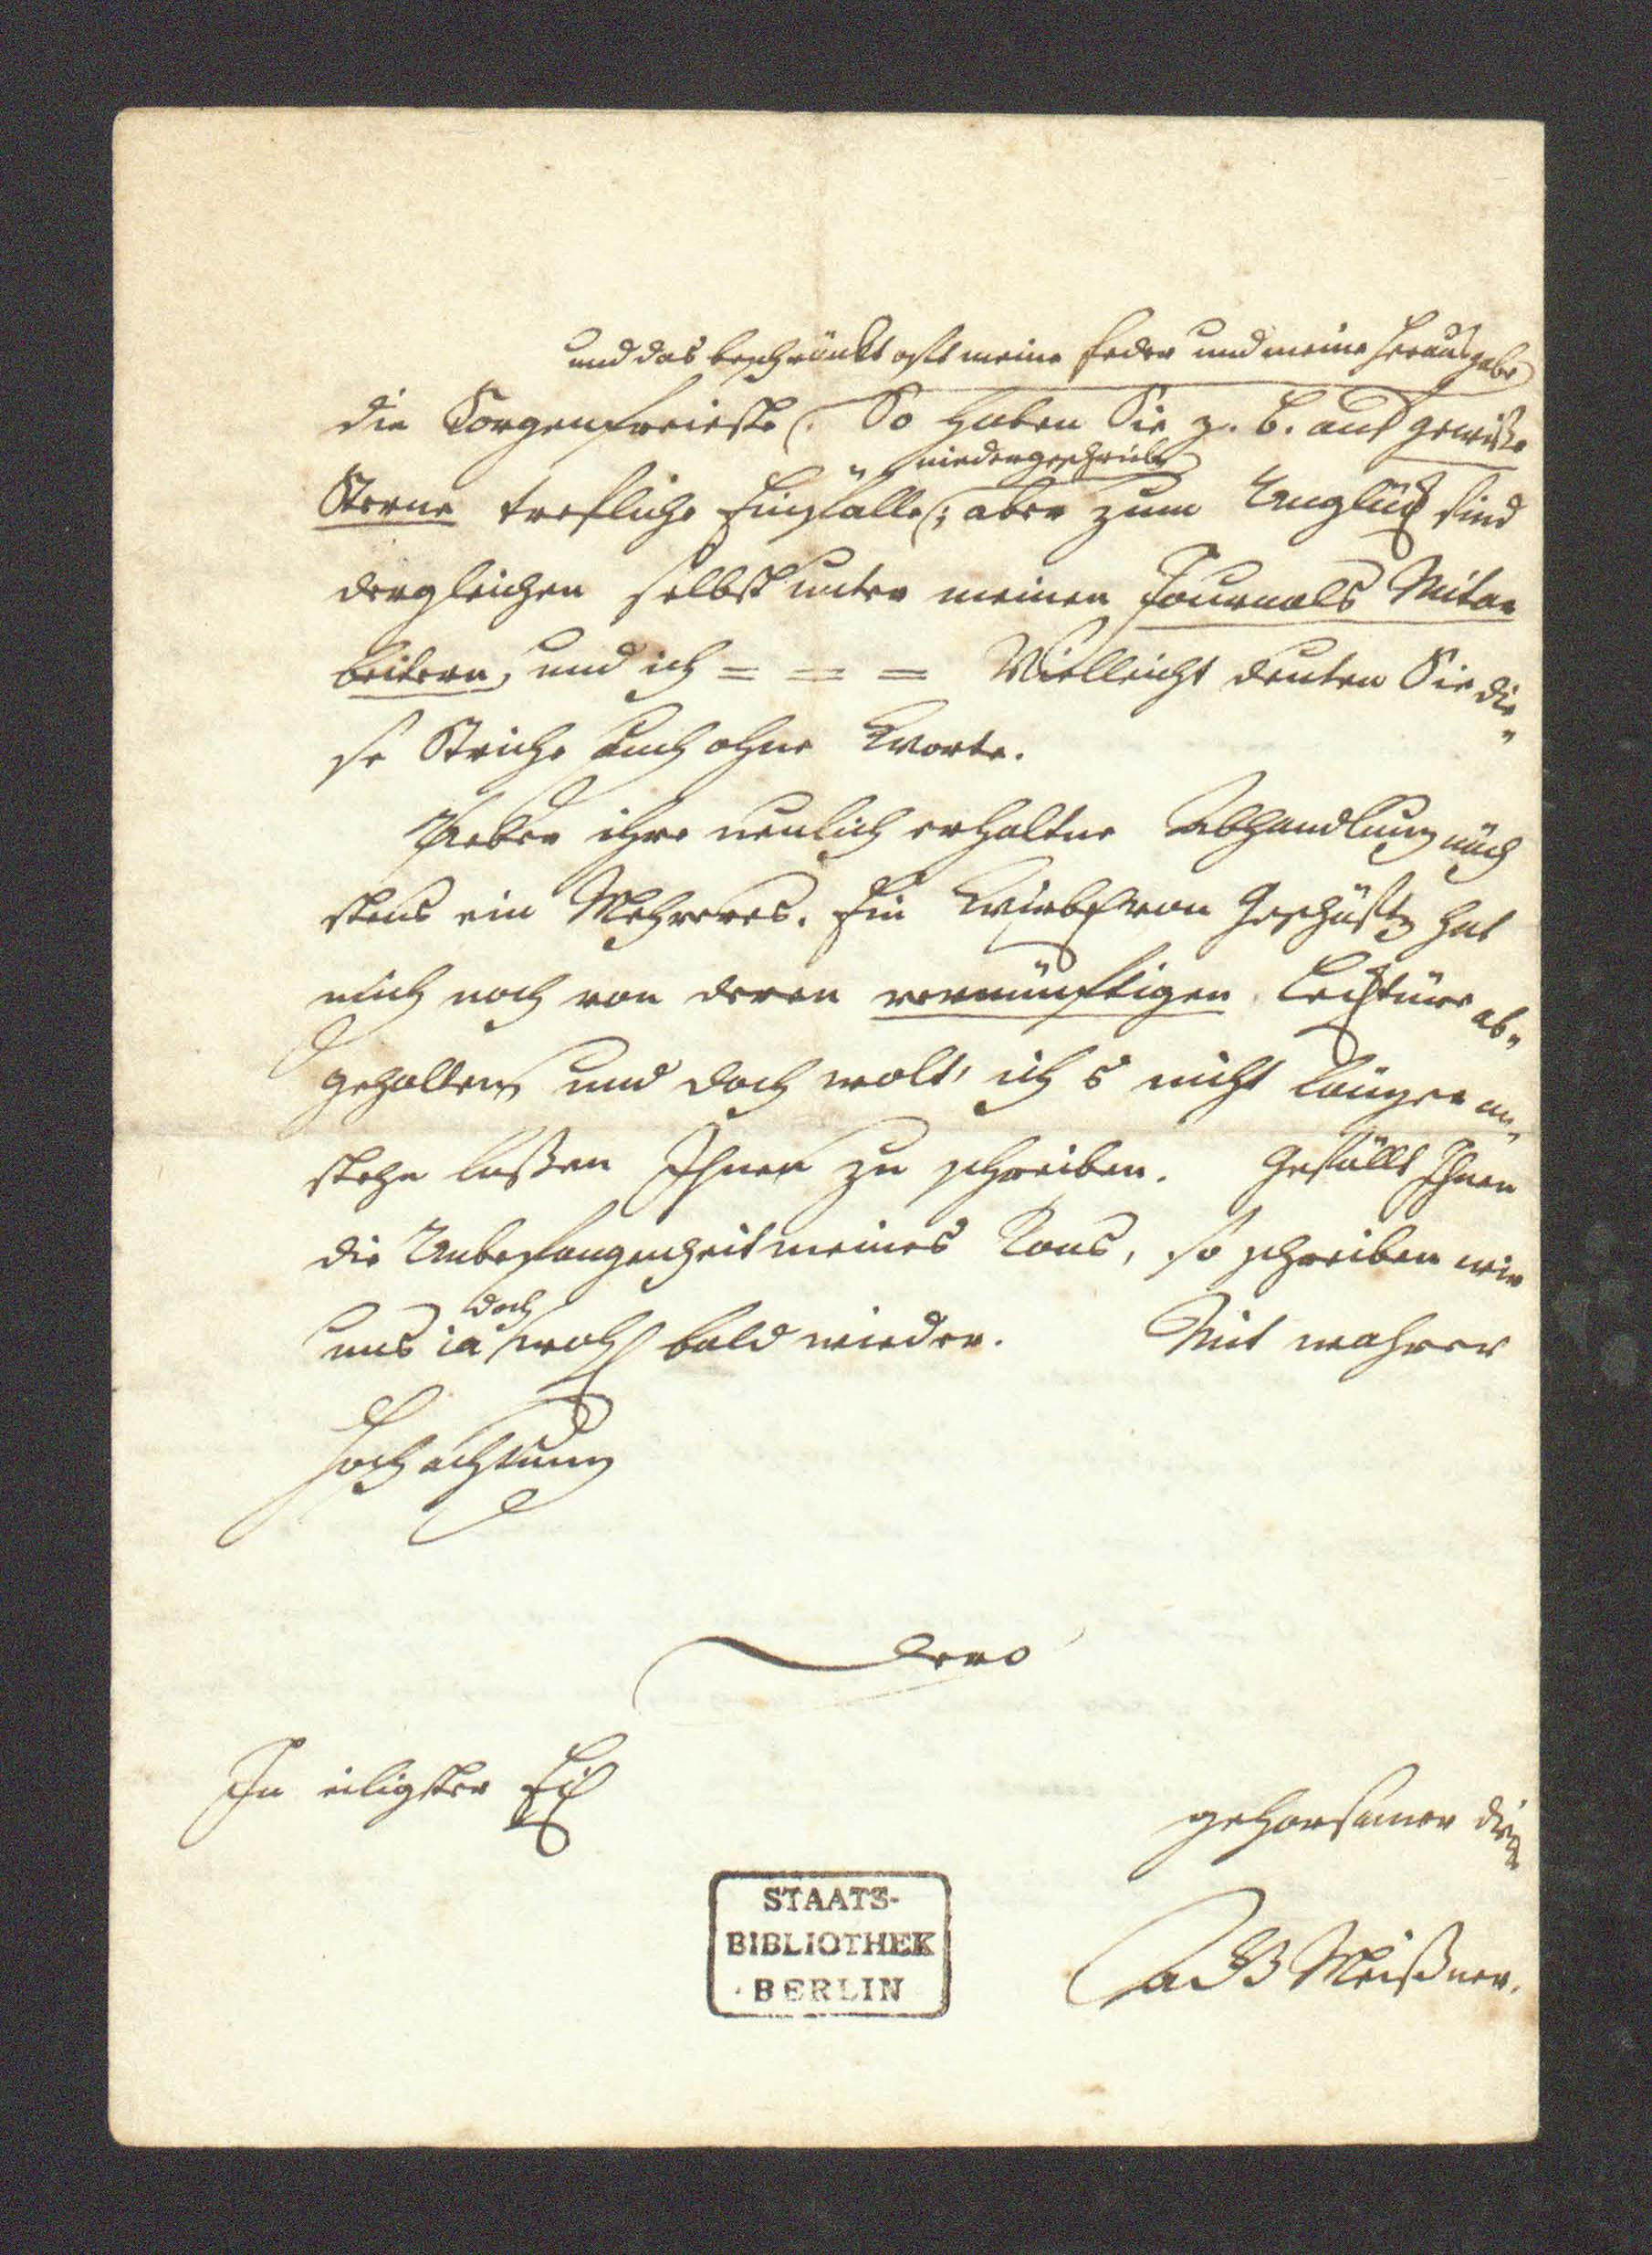 und das beschränkt oft meine Feder und meine Herausgabe
die Sorgenfreieste. So haben Sie z. B. auf gewiße
niedergeschrieben
Sterne trefliche Einfälle; aber zum Unglück sind
dergleichen selbst unter meinen Journals Mitar
beitern, und ich = = = Vielleicht deuten Sie die„
se Striche auch ohne Worte.
Ueber ihre neulich erhaltne Abhandlung näch
stens ein Mehreres. Ein Wirbel von Geschäften hat
mich noch von deren vernünftigen Lecktüre ab„
gehalten, und doch wolt' ich's nicht länger an„
stehn laßen Ihnen zu schreiben. Gefällt Ihnen
die Unbefangenheit meines Tons, so schreiben wir
doch
uns ja wohl bald wieder. Mit wahrer
Hochachtung
Dero
In eiligster Eil
gehorsamer
STAATS-
BIBLIOTHEK
BERLIN
Meißner.